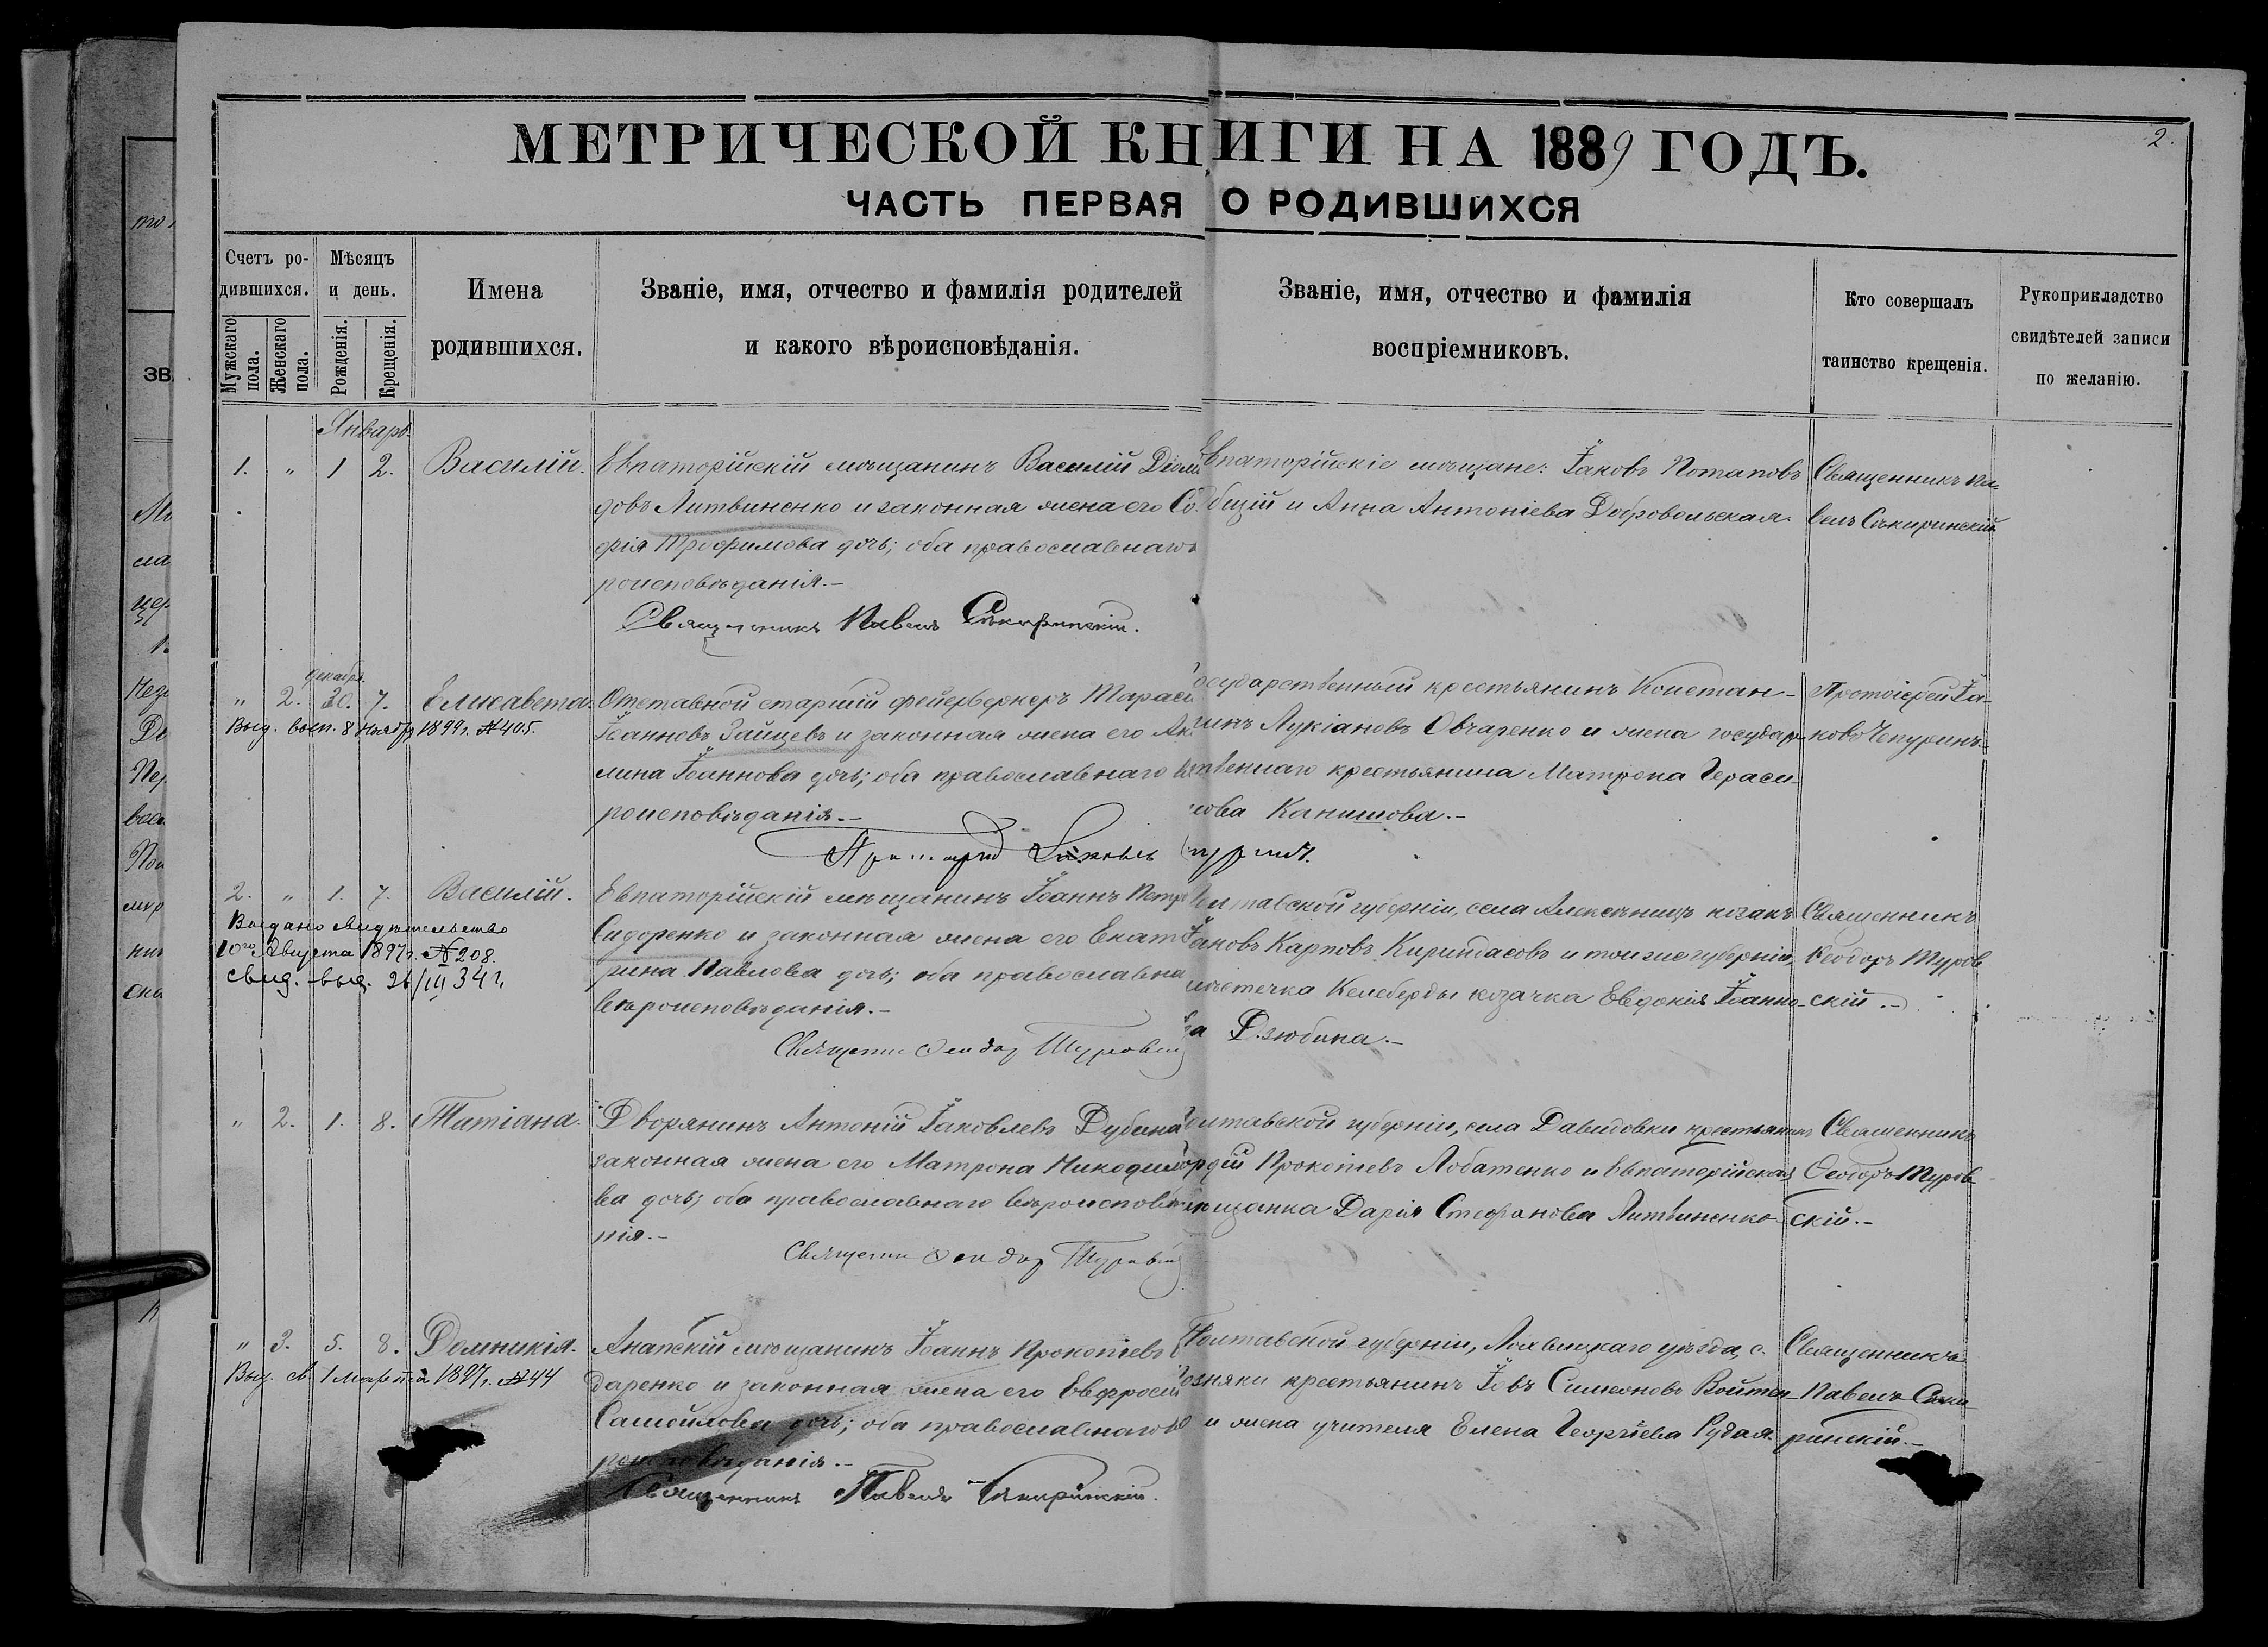 2.
МЕТРИЧЕСКОЙ КНИГИ НА 1889 ГОДЪ.
ЧАСТЬ ПЕРВАЯ О РОДИВШИХСЯ
Счетъ ро-
дившихся.
Мужскаго
пола.
Женскаго
пола.
Мѣсяцъ
и день.
Рожденія.
Крещенія.
Имена
родившихся.
Званіе, имя, отчество и фамилія родителей
и какого вѣроисповѣданія.
Званіе, имя, отчество и фамилія
воспріемниковъ.
Кто совершалъ
таинство крещенія.
Рукоприкладство
свидѣтелей записи
по желанію.
Январь.
1. " 1 2. Василій.
Евпаторійскій мѣщанинъ Василій
довъ Литвиненко и законная жена его Со
фія Трофимова дочь; оба православнаго
роисповѣданія.-
Священникъ Павелъ Сѣкиринскій.
Евпаторійскіе мѣщане: Іаковъ Потаповъ
и Анна Антоніева Добровольская.
Священникъ Па-
велъ Сѣкиринскій
декабря.
" 2. 30. 7. Елисавета.
Выд. восп. 8 Ноября 1899 г. №405.
Отставной старшій фейерверкеръ Тарасі
Іоанновъ Зайцевъ и законная жена его Ак
лина Іоаннова дочь; оба православнаго вѣ
роисповѣданія.-
Государственный крестьянинъ Констан-
тинъ Лукіановъ Овчаренко и жена государ-
ственнаго крестьянина Матрона Гераси-
мова Канишова.-
Протоіерей Іа-
ковъ Чепуринъ.
2. " 1. 7. Василій.
Выдано свидѣтельство
10го Августа 1897 г. №208.
свид. выд. 26/III 34 г.
Евпаторійскій мѣщанинъ Іоаннъ Петро
Сидоренко и законная жена его Екате
рина Павлова дочь; оба православна
вѣроисповѣданія.-
Священник Феодор Туровскій
Полтавской губерніи, села козакъ
Іаковъ Карповъ и тойже губерніи,
мѣстечка Келеберды козачка Евдокія Іоанно-
ва Дзюбина.-
Священникъ
Феодоръ Туров
скій.-
" 2. 1. 8. Татіана.
Дворянинъ Антоній Іаковлевъ Дубина
законная жена его Матрона Никодимо
ва дочь; оба православнаго вѣроисповѣда
нія.-
Священник Феодор Туровскій
Полтавской губерніи, села Давидовки крестьянинъ
Гордій Прокопіевъ Лобатенко и Евпаторійская
мѣщанка Дарія Стефанова Литвиненко
Священникъ
Ѳеодоръ Туров-
скій.-
" 3. 5. 8. Домникія.
Выд. св. 1 Марта 1897 г. №44
Анапскій мѣщанинъ Іоаннъ Прокопіевъ
даренко и законная жена его Евфросин
Самойлова дочь; оба православнаго вѣ
роисповѣданія.-
Священникъ Павелъ Сѣкиринскій.
Полтавской губерніи, Лохвицкаго уѣзда, с.
Позняки крестьянинъ Іовъ Симеоновъ Войтен-
ко и жена учителя Елена Георгіева Рудая.
Священникъ
Павелъ Сѣки-
ринскій.-